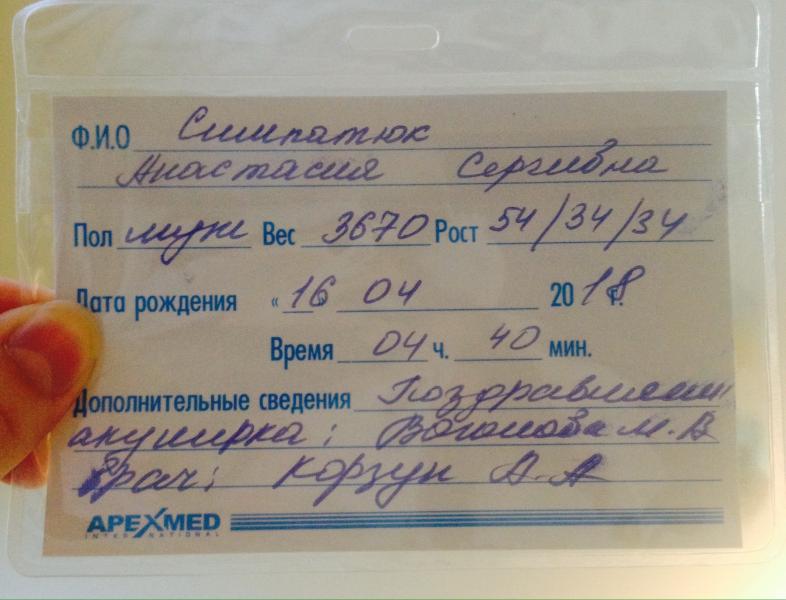 Ф.И.О Симпатюк
Анастасия Сергивна
Пол муж Вес 3670 Рост 54/34/34
Дата рождения «16 04 2018 г.
Время 04 ч. 40 мин.
Дополнительные сведения Поздравляем
акуширка: М.В
Врач: Корзун А.А
APEXMED
INTERNATIONAL